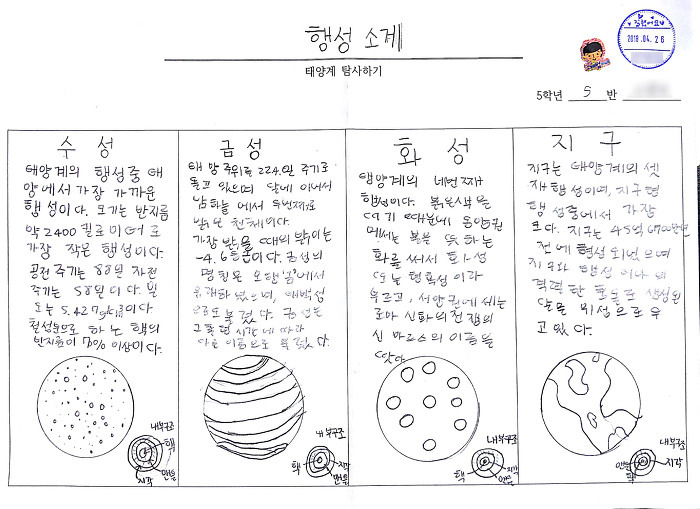 행성 소계
참 잘했어요
2018.04.26
태양계 탐사하기
5학년 5 반
수 성
태양계의 행성중 태
양에서 가장 가까운
행성이다. 크기는 반지름
약 2400 킬로미터로
가장 작은 행성이다.
공전 주기는 88일 자전
주기는 58일이다. 밀
도는 5.427g/㎤이다
철성분으로 하는 핵의
반지름이 70% 이상이다.
내부구조
핵
지각
맨틀
금성
태양 주위를 224일 주기로
돌고 있으며 달에 이어서
밤하늘 에서 두번째로
밝은 천체이다.
가장 밝을 때의 밝기는
-4.6등급이다. 금성의
명칭은 오행 '금'에서
유래하였으며, 태백성
으로도 불렸다. 금성은
시간에 따라
다른 이름으로 불렸다.
내부구조
핵
지각
맨틀
화 성
태양계의 네번째
행성이다. 붉은색을
띄기 때문에 동양권
에서는 불을 뜻하는
화를 써서 화성
또는 형혹성 이라
부르고, 서양권에서는
로마 신화의 전쟁의
신 마르스의 이름을
땄다.
내부구조
핵
지각
맨틀
지 구
지구는 태양계의 셋
째 행성이며, 지구형
행성중에서 가장
크다. 지구는 45억 6700만년
전에 형성 되었으며
지구와 행성
격력한 충돌로 생성된
달을 위성으로 두
고 있다.
내부구조
맨틀
핵
지각